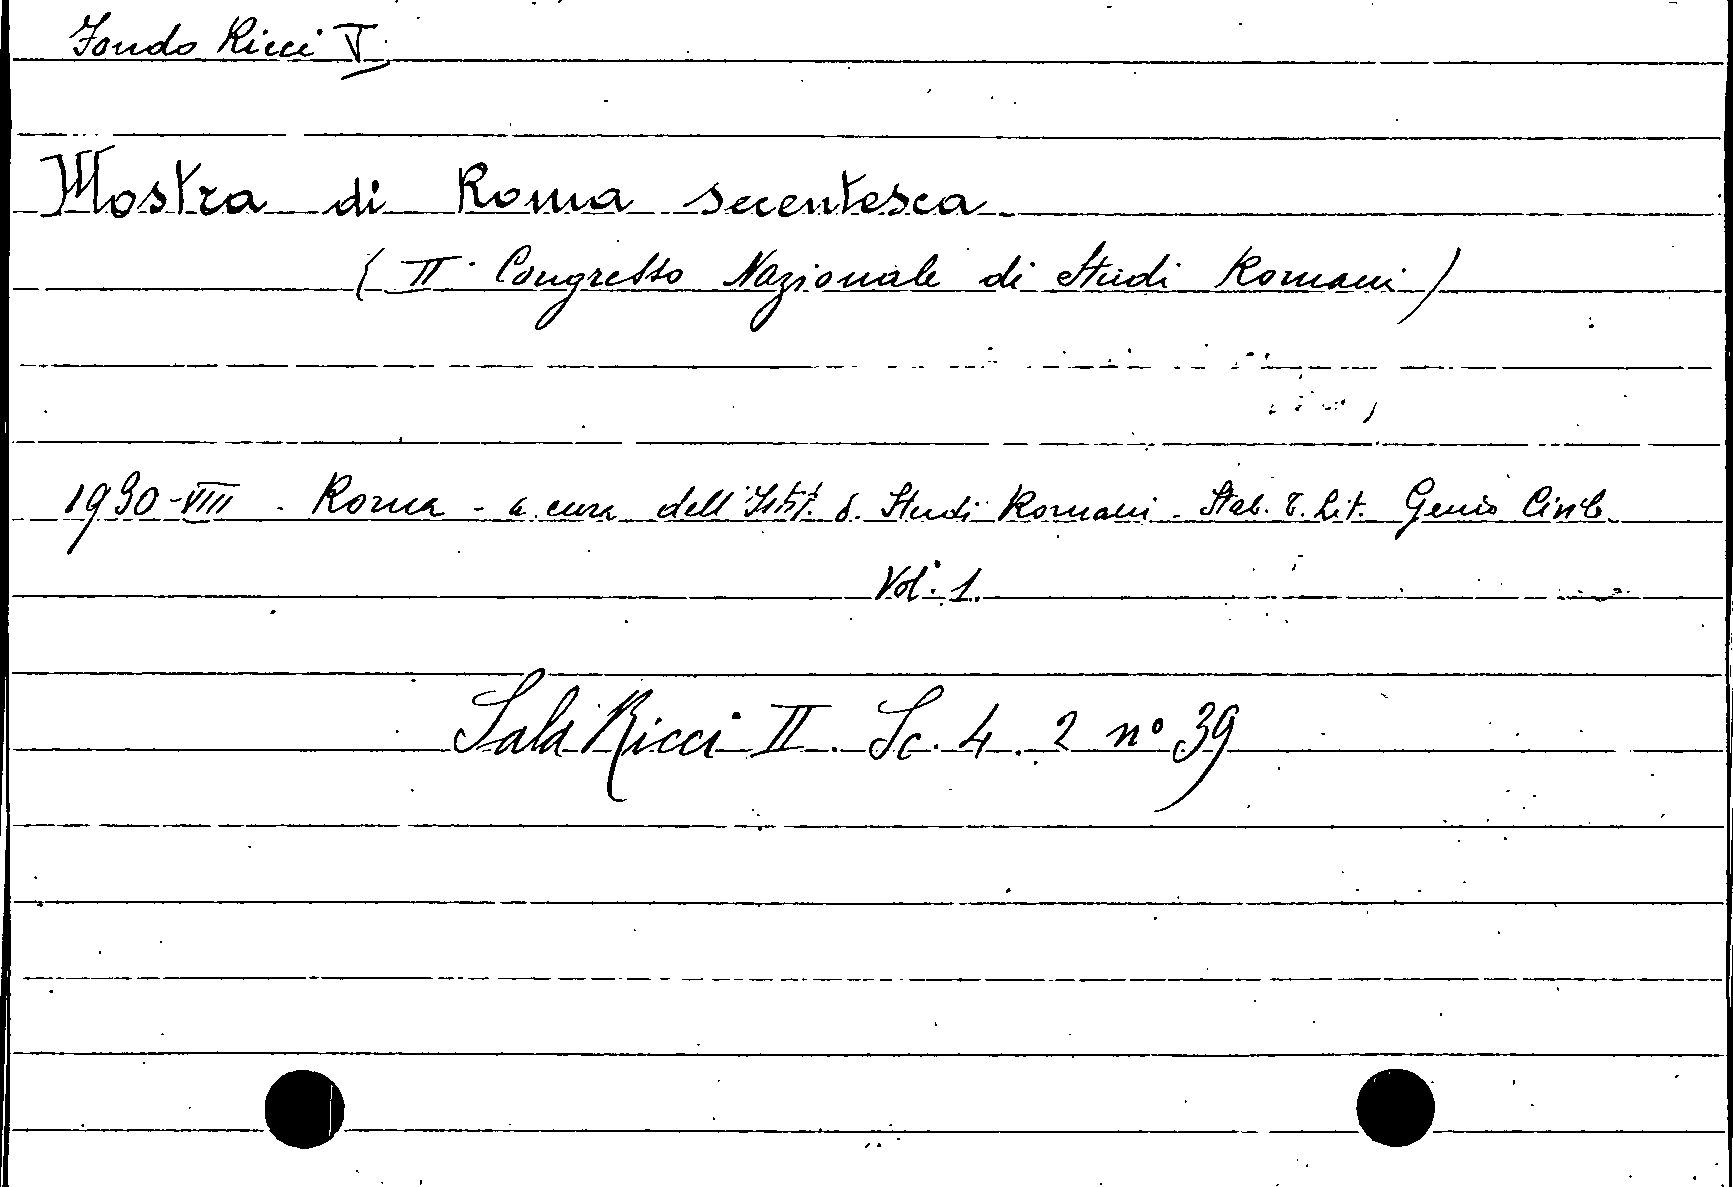 Fondo Ricci V
Mostra di Roma secentesca.
( II. Congresso Nazionale di Studi Romani )
1930-VIII - Roma - a cura dell'Istit. d. Studi Romani - Stab. T. Lit. Genio Civile.
Vol. 1.
Sala Ricci II. Sc. 4. 2 n° 39